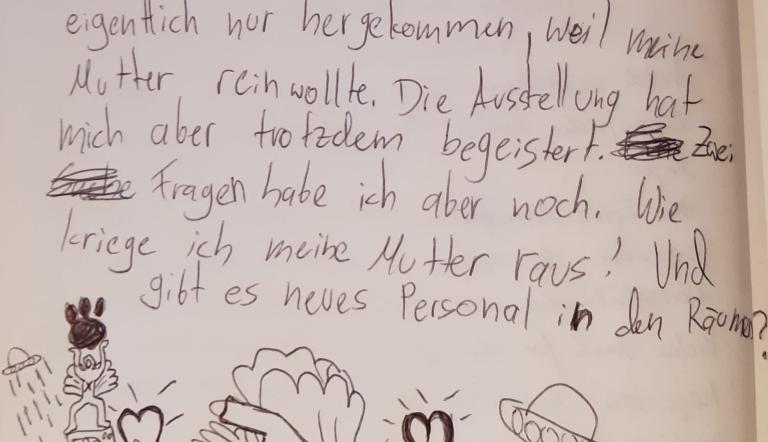 eigentlich nur hergekommen, weil meine
Mutter rein wollte. Die Ausstellung hat
mich aber trotzdem begeistert. Zwei
Fragen habe ich aber noch. Wie
kriege ich meine Mutter raus? Und
gibt es neues Personal in den Räumen?